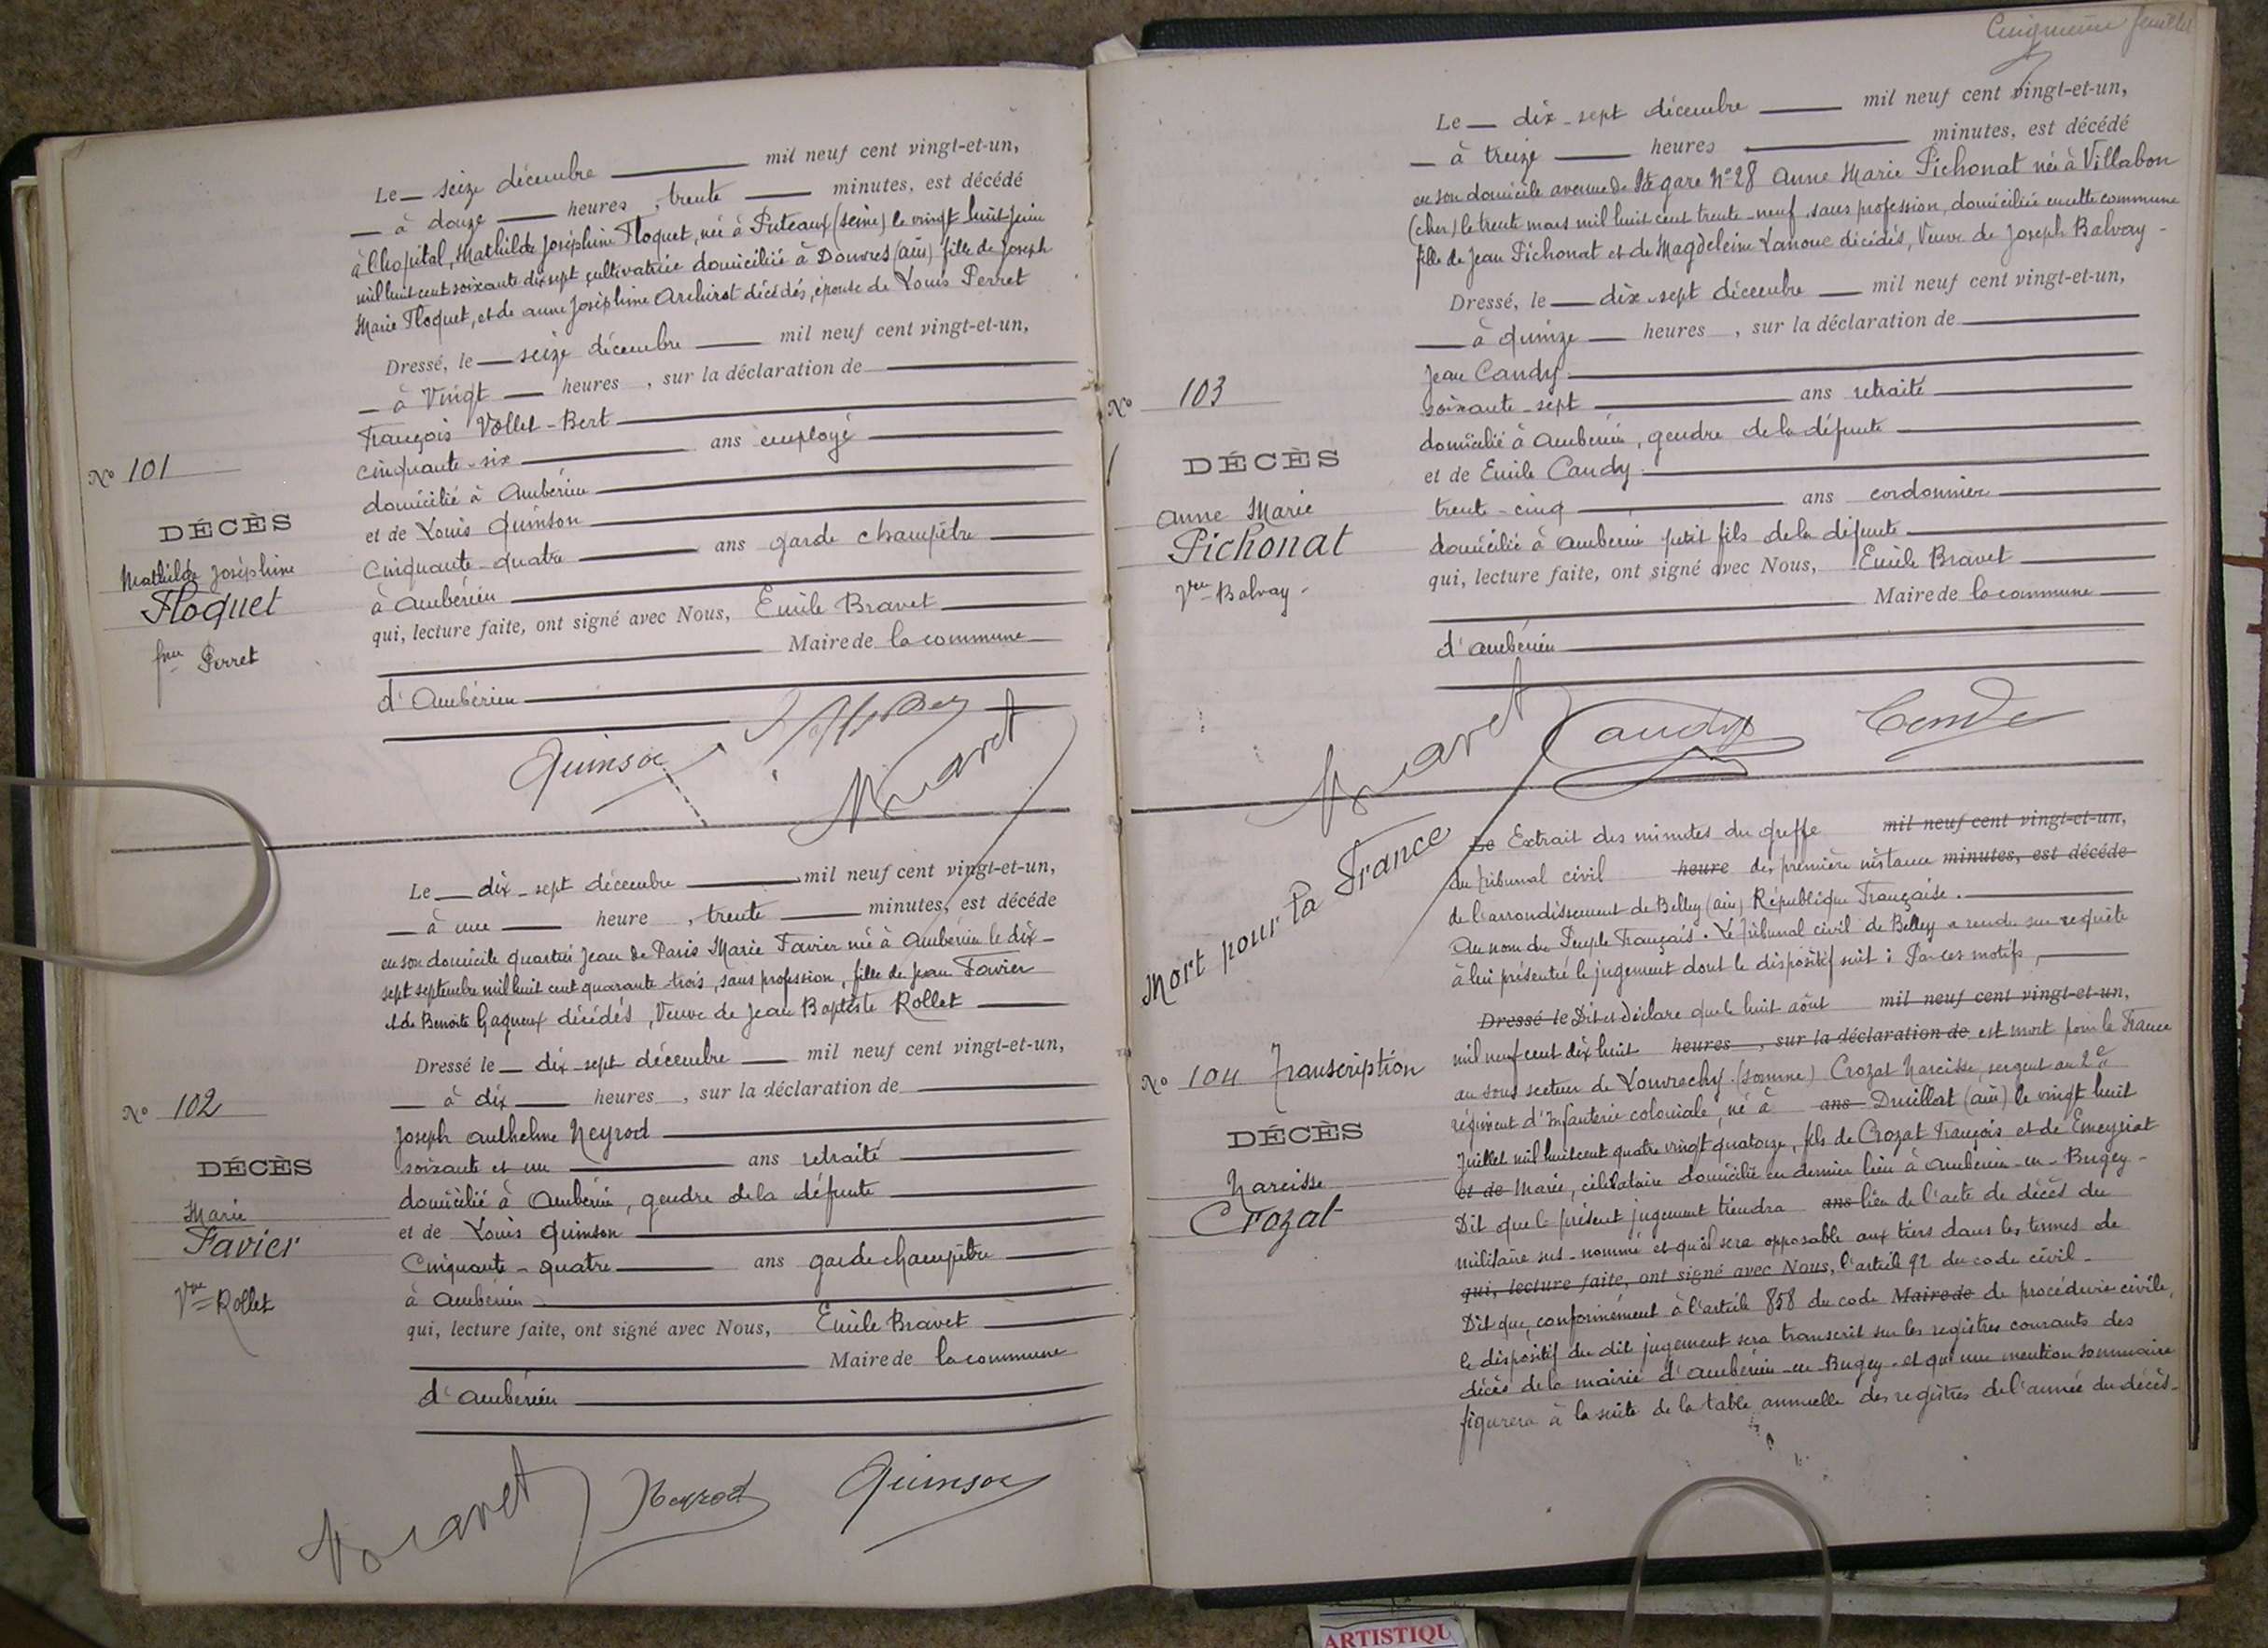 Le — seize décembre — mil neuf cent vingt-et-un,
— à douze — heures, trente — minutes, est décédé
à l'hopital, Mathilde Joséphine Floquet, née à Puteaux (Seine) le vingt huit Juin
mil huit cent soixante dix sept cultivatrice domiciliée à Douvres (ain) fille de Joseph
Marie Floquet, et de anne Joséphine décédés, épouse de Louis Perret
Dressé, le — seize décembre — mil neuf cent vingt-et-un,
— à Vingt — heures, sur la déclaration de
François Vollet-Bert
cinquante-six ans employé
domicilié à Ambérieu
et de Louis Quinson
Cinquante-quatre ans garde champêtre
à Ambérieu
qui, lecture faite, ont signé avec Nous, Emile Bravet
Maire de la commune
d'Ambérieu
No 101
DÉCÈS
Mathilde Joséphine
Floquet
fme Perret
Quinson
Bravet
Le — dix-sept décembre — mil neuf cent vingt-et-un,
— à une — heure, trente — minutes, est décédé
en son domicile quartier Jean de Paris Marie Favier née à Ambérieu le dix-
sept septembre mil huit cent quarante-trois, sans profession, fille de Jean Favier
et de Benoite Gaqueux décédés, Veuve de Jean Baptiste Rollet
Dressé le — dix-sept décembre — mil neuf cent vingt-et-un,
— à dix — heures, sur la déclaration de
Joseph anthelme Neyrod
soixante et un ans retraité
domicilié à Ambérieu, gendre de la défunte
et de Louis Quinson
Cinquante-quatre ans garde champêtre
à Ambérieu
qui, lecture faite, ont signé avec Nous, Emile Bravet
Maire de la commune
d'Ambérieu
No 102
DÉCÈS
Marie
Favier
Vve Rollet
Bravet Neyrod Quinson
Cinquième feuillet
Le — dix-sept décembre — mil neuf cent vingt-et-un,
— à treize — heures — minutes, est décédé
en son domicile avenue de la gare No 28 Anne Marie Pichonat née à Villabon
(cher) le trente mars mil huit cent trente-neuf, sans profession, domiciliée en cette commune
fille de Jean Pichonat et de Magdeleine Lanoue décédés, Veuve de Joseph Balvay -
Dressé, le — dix-sept décembre — mil neuf cent vingt-et-un,
— à quinze — heures, sur la déclaration de
Jean Candy
soixante-sept ans retraité
domicilié à Ambérieu, gendre de la défunte
et de Emile Candy
trente-cinq ans cordonnier
domicilié à Ambérieu petit fils de la défunte
qui, lecture faite, ont signé avec Nous, Emile Bravet
Maire de la commune
d'Ambérieu
No 103
DÉCÈS
Anne Marie
Pichonat
Vve Balvay -
Bravet Candy Candy
Mort pour la France
Le Extrait des minutes du greffe mil neuf cent vingt-et-un,
du tribunal civil heure de première instance minutes, est décédé
de l'arrondissement de Belley (ain) République Française.
Au nom du Peuple Français. Le Tribunal civil de Belley a rendu sur requête
à lui présentée le jugement dont le dispositif suit : Par ces motifs,
Dressé le Dit et déclare que le huit août mil neuf cent vingt-et-un,
mil neuf cent dix huit heures, sur la déclaration de est mort pour la France
au sous secteur de Louvrechy (somme) Crozat Narcisse, sergent au 2e
régiment d'Infanterie coloniale, né à ans Druillat (ain) le vingt huit
Juillet mil huit cent quatre vingt quatorze, fils de Crozat François et de Emeyriat
et de Marie, célibataire domicilié en dernier lieu à Ambérieu-en-Bugey -
Dit que le présent jugement tiendra ans lieu de l'acte de décès du
militaire sus-nommé et qu'il sera opposable aux tiers dans les termes de
qui, lecture faite, ont signé avec Nous, l'article 92 du code civil -
Dit que, conformément à l'article 858 du code Maire de de procédure civile,
le dispositif du dit jugement sera transcrit sur les registres courants des
décès de la mairie d'Ambérieu-en-Bugey - et qu'une mention sommaire
figurera à la suite de la table annuelle des registres de l'année du décès -
No 104 Transcription
DÉCÈS
Narcisse
Crozat
ARTISTIQU